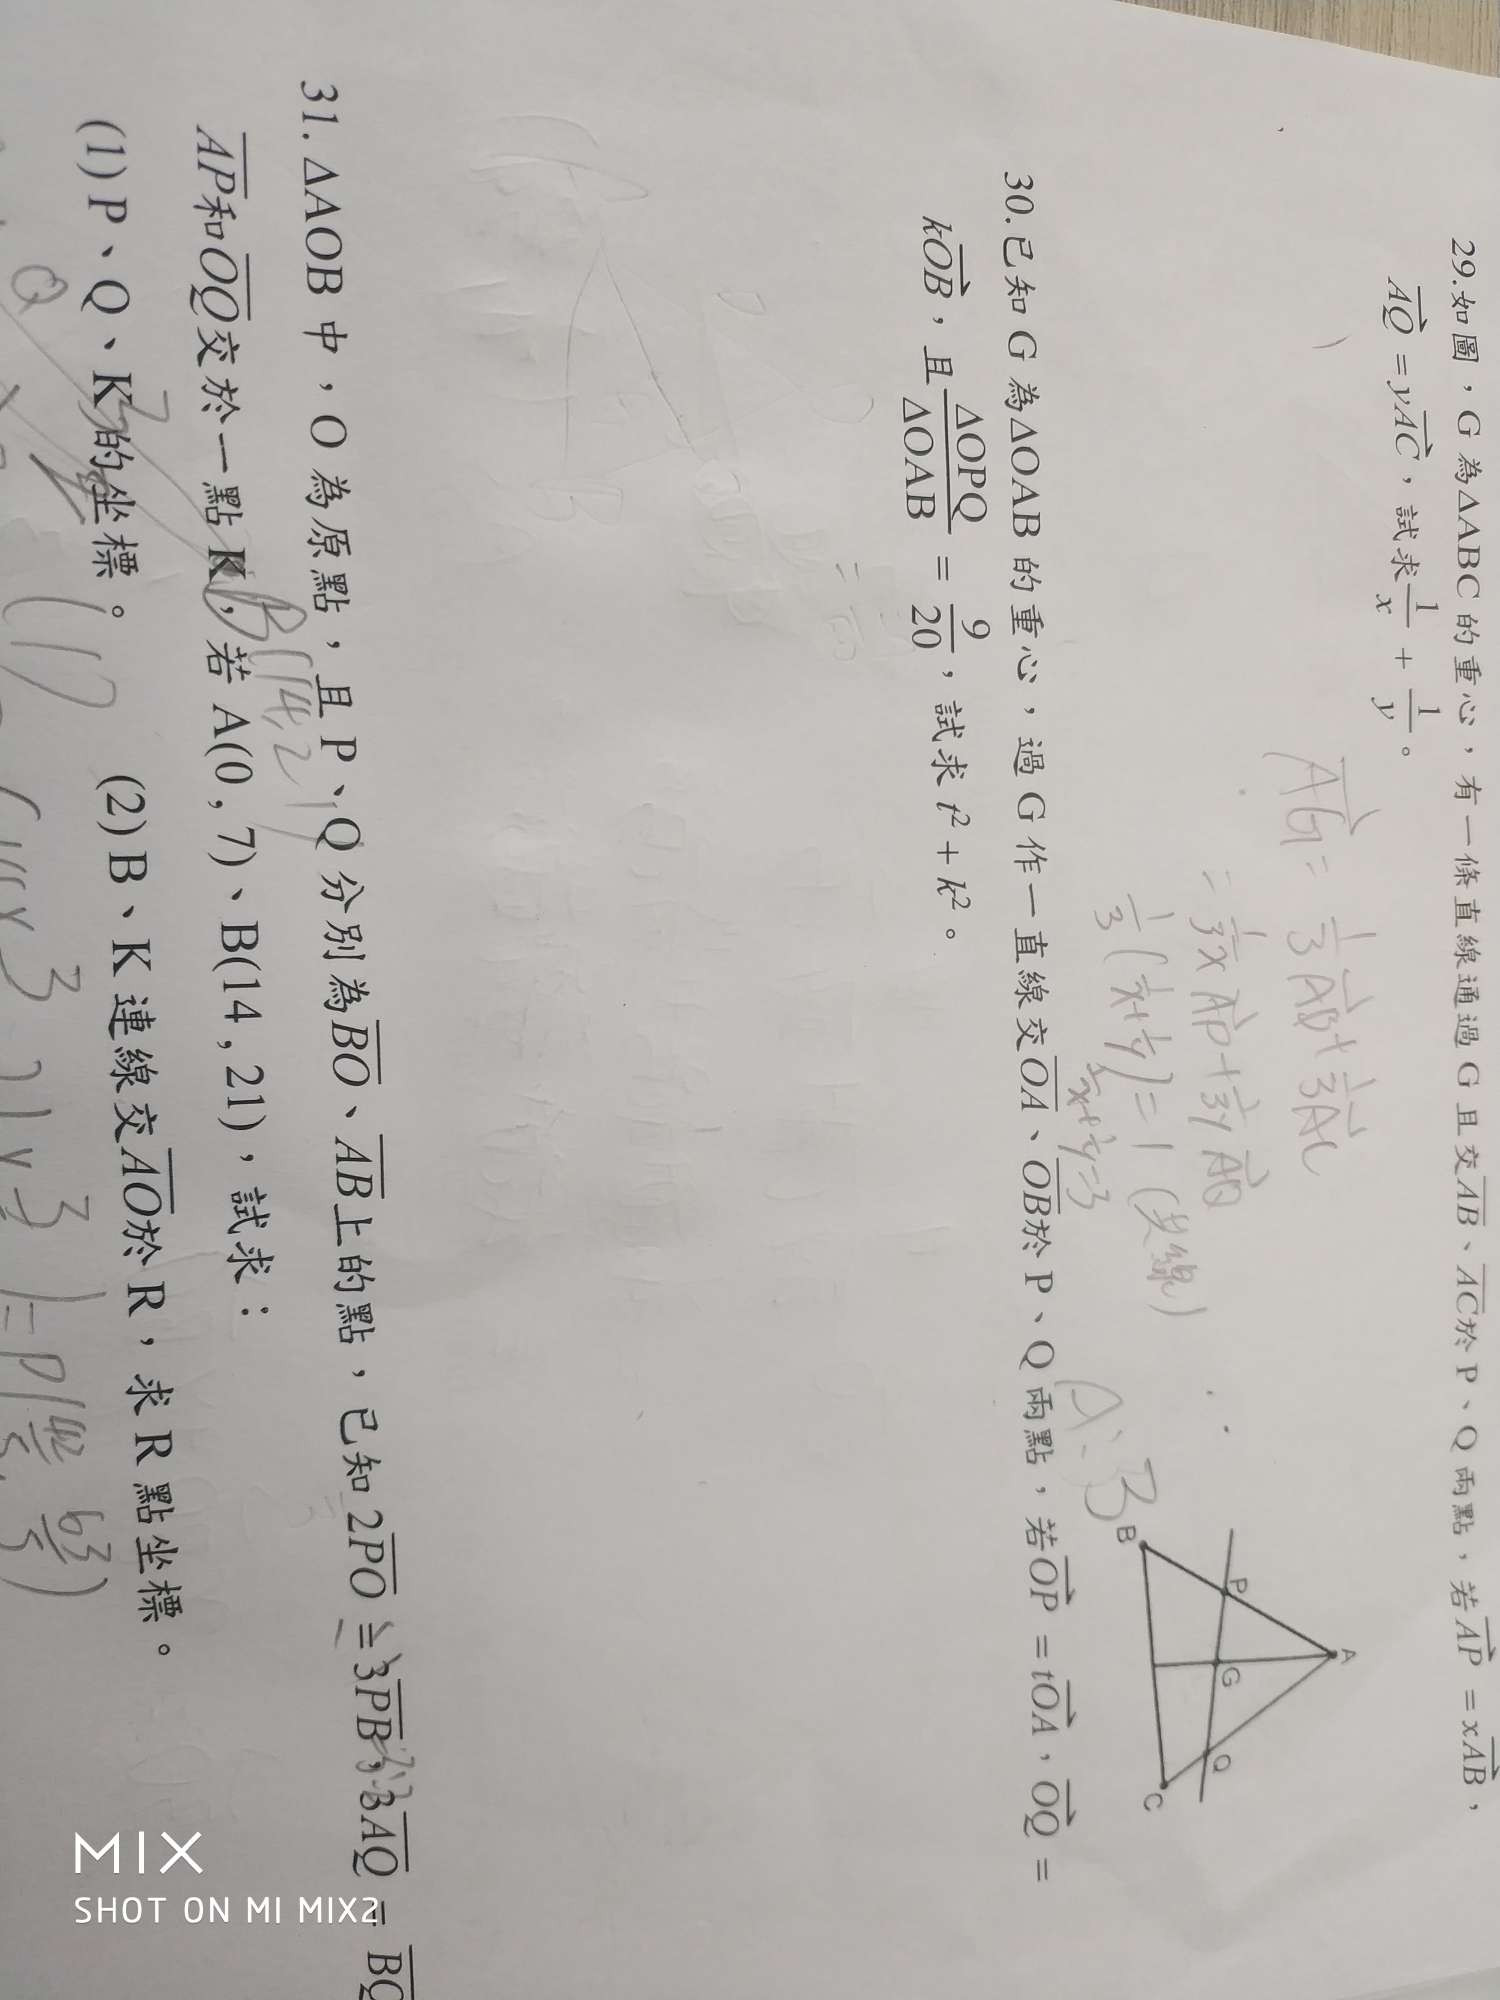 29.如圖，G 為ΔABC 的重心，有一條直線通過 G 且交AB、AC於 P、Q 兩點，若AP = xAB，
AQ = yAC，試求1/x + 1/y。
AG = 1/3 AB + 1/3 AC
= 1/3x AP + 1/3y AQ
1/3 (1/x + 1/y) = 1 (共線)
1/x + 1/y = 3
A：3
A
P
G
Q
B
C
30.已知 G 為ΔOAB 的重心，過 G 作一直線交OA、OB於 P、Q 兩點，若OP = tOA，OQ =
kOB，且ΔOPQ/ΔOAB = 9/20，試求 t² + k²。
31. ΔAOB 中，O 為原點，且 P、Q 分別為BO、AB上的點，已知 2PO = 3PB，3AQ = BQ
B(14,21)
AP和OQ交於一點 K，若 A(0 , 7)、B(14 , 21)，試求：
(1) P、Q、K的坐標。 (2) B、K 連線交AO於 R，求 R 點坐標。
Q
(1)
= P(42/5, 63/5)
MIX
SHOT ON MI MIX2